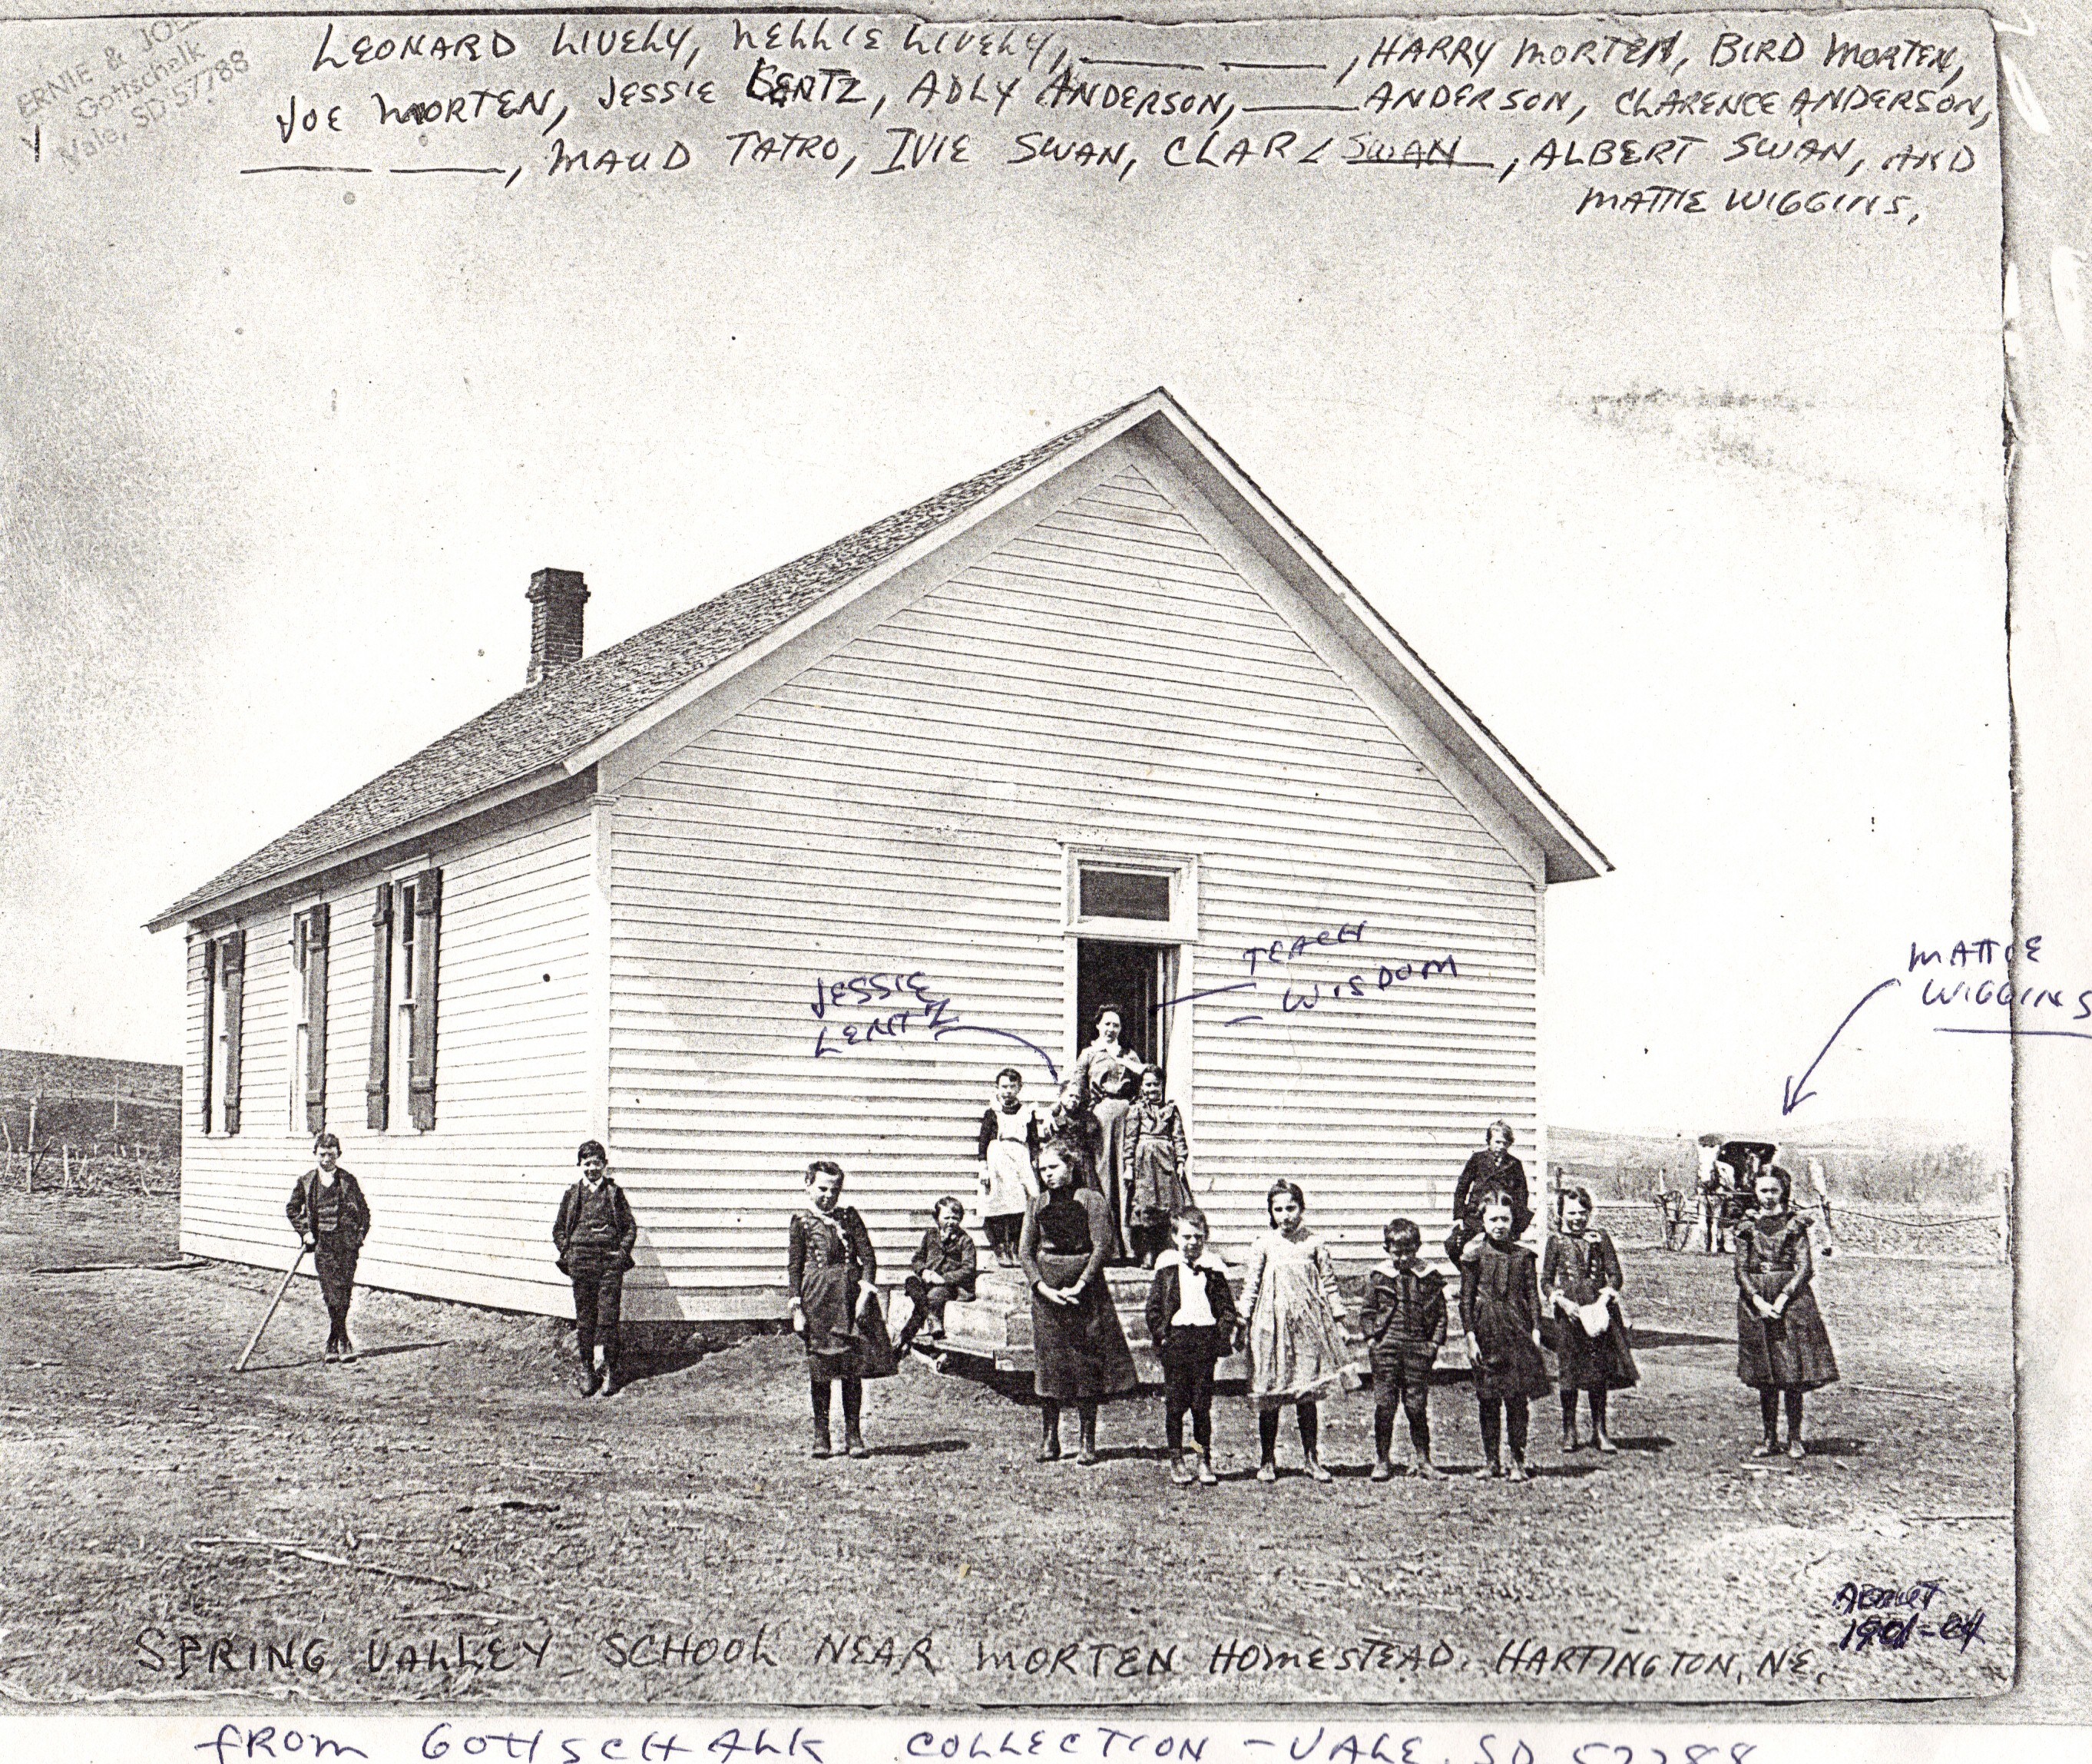 ERNIE & JOE
Gottschalk
Vale, SD 57788
LEONARD LIVELY, NELLIE LIVELY, ____ ____, HARRY MORTEN, BIRD MORTEN,
JOE MORTEN, JESSIE LENTZ, ADLY ANDERSON, ____ ANDERSON, CLARENCE ANDERSON,
____ ____, MAUD TATRO, IVIE SWAN, SWAN, ALBERT SWAN, AND
MATTIE WIGGINS.
TEACH
WISDOM
JESSIE
LENTZ
MATTIE
WIGGINS
ABOUT
SPRING VALLEY SCHOOL NEAR MORTEN HOMESTEAD. HARTINGTON, NE.
FROM GOTTSCHALK COLLECTION - VALE, SD 57788